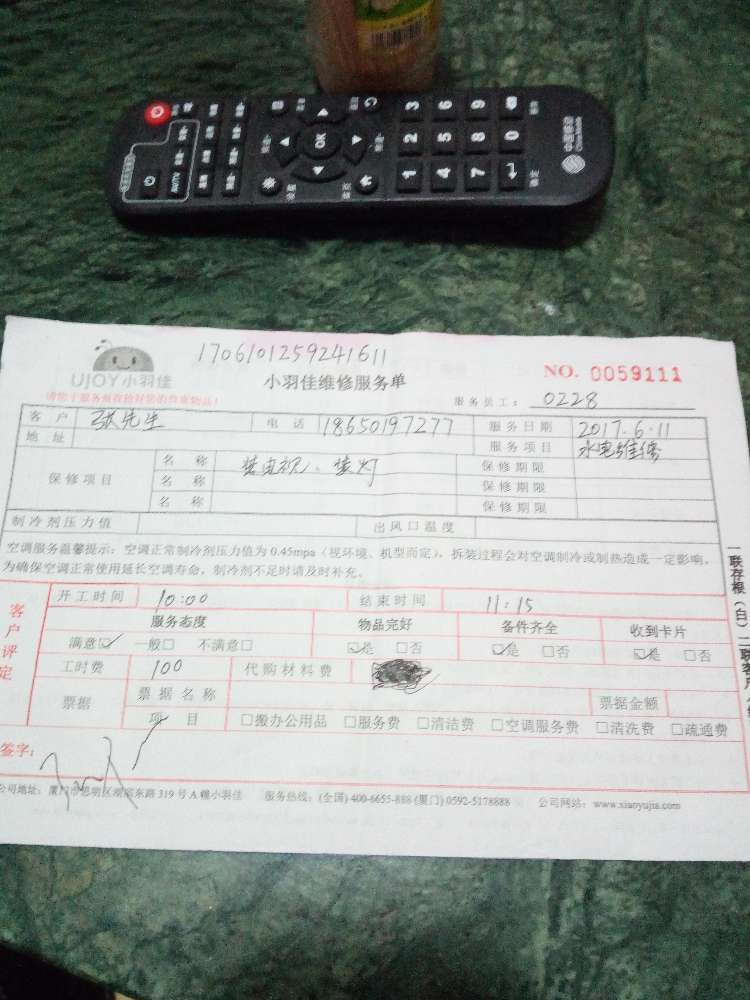 OK
1 2 3
4 5 6
7 8 9
0
AV/TV
中国移动
China Mobile
1706101259241611
UJOY小羽佳
小羽佳维修服务单
NO. 0059111
请您于服务前收拾好您的贵重物品!
服务员工: 0228
客户 张先生 电话 18650197277 服务日期 2017.6.11
地址 服务项目 水电维修
保修项目 名称 装电视、装灯 保修期限
名称 保修期限
名称 保修期限
制冷剂压力值 出风口温度
空调服务温馨提示:空调正常制冷剂压力值为0.45mpa(视环境、机型而定),拆装过程会对空调制冷或制热造成一定影响,
为确保空调正常使用延长空调寿命,制冷剂不足时请及时补充。
一联存根(白)二联客户
客户评定
开工时间 10:00 结束时间 11:15
服务态度 物品完好 备件齐全 收到卡片
满意☑ 一般□ 不满意□ ☑是 □否 ☑是 □否 ☑是 □否
工时费 100 代购材料费
票据 票据名称 票据金额
项目 □搬办公用品 □服务费 □清洁费 □空调服务费 □清洗费 □疏通费
签字:
公司地址:厦门市思明区 东路319号A幢小羽佳 服务热线:(全国) 400-6655-888 (厦门) 0592-5178888 公司网站:www.xiaoyujia.com